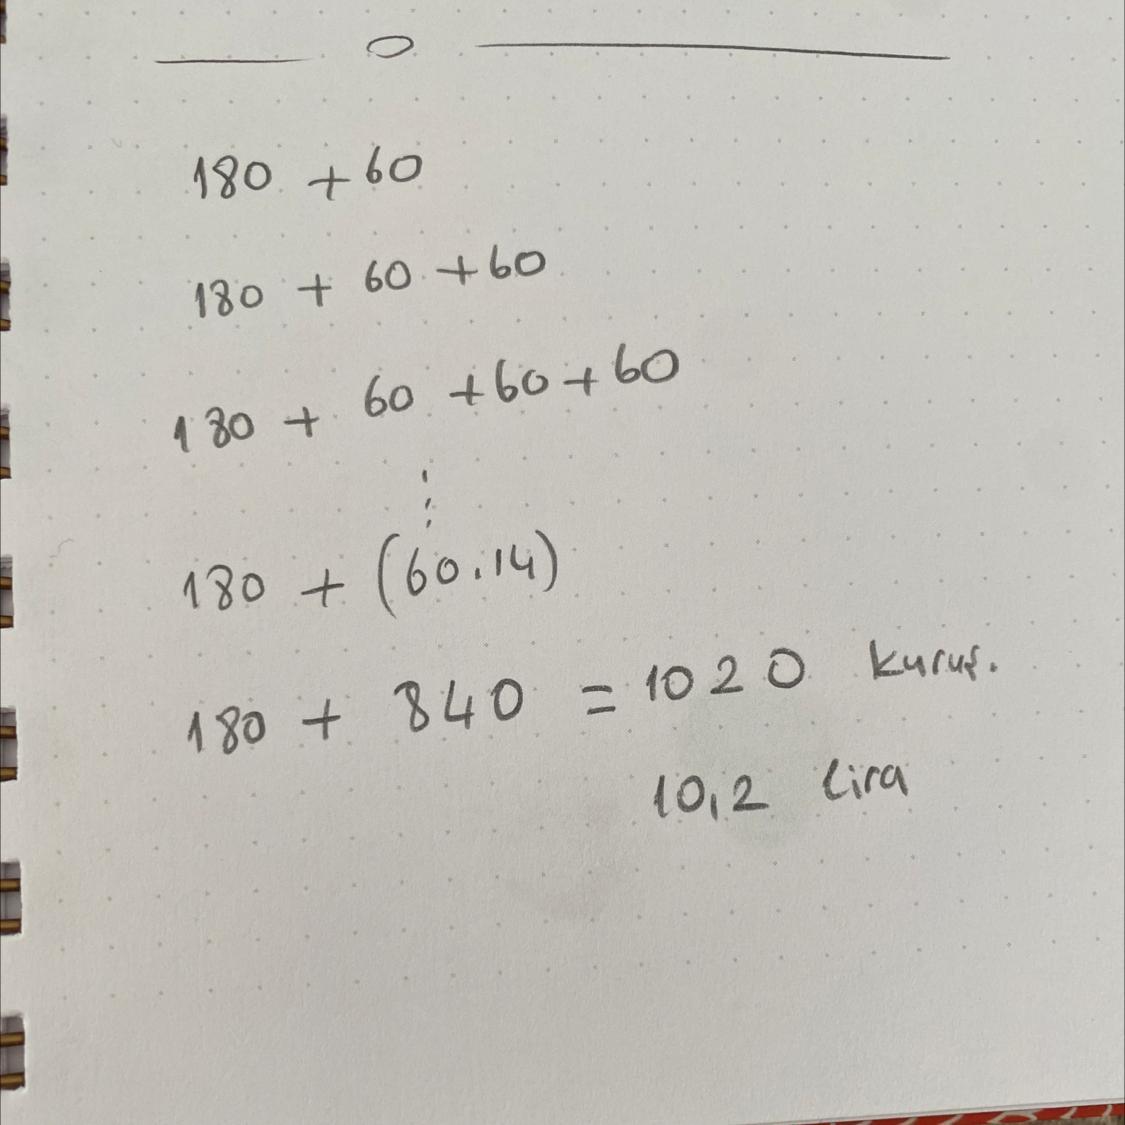 180 + 60
180 + 60 + 60
180 + 60 + 60 + 60
⋮
180 + (60.14)
180 + 840 = 1020 kuruş.
10,2 lira